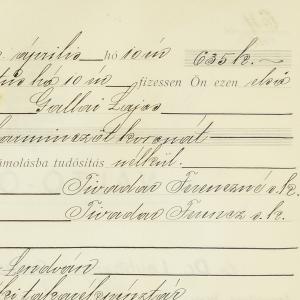 április hó 10 én 635 k. ~
hó 10 én fizessen Ön ezen első
Gallai Lajos
harminczöt koronát
ámolásba tudósítás nélkül.
Tivadar Ferenczné s.k.
Tivadar Ferencz s.k.
Lendván
ki takarékpénztár